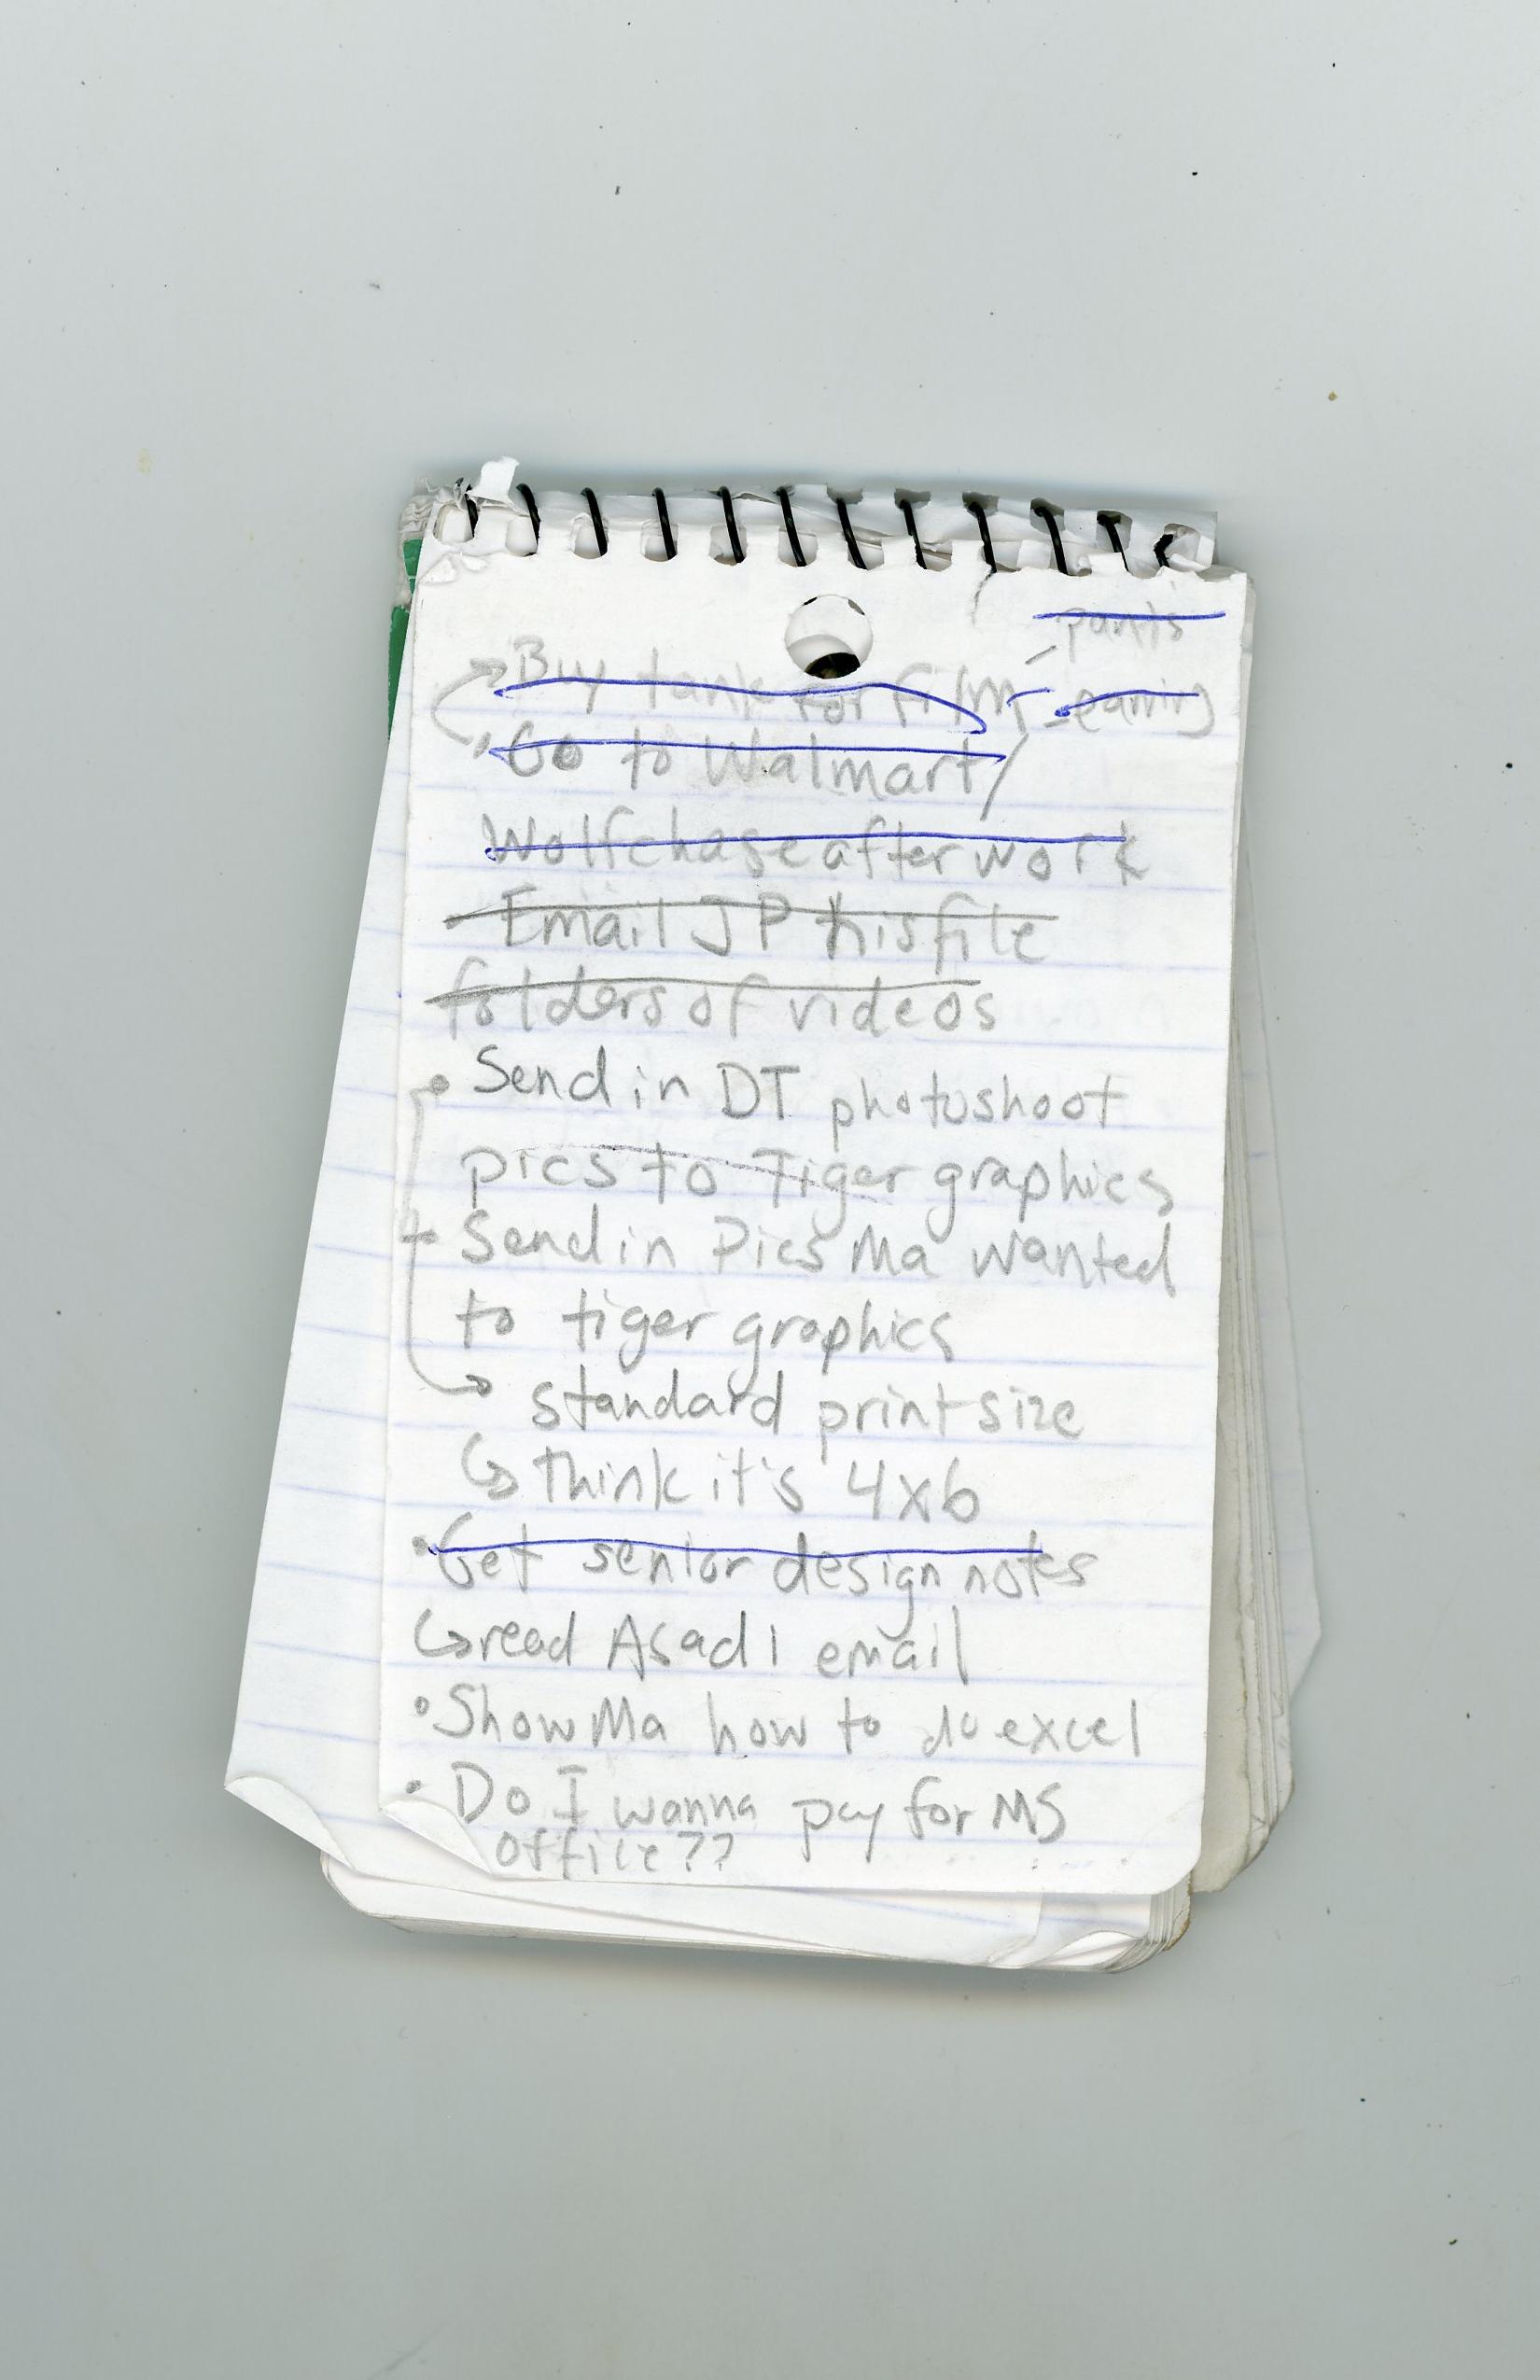 - pants
→ Buy tank for film - earring
• Go to Walmart/
Wolfchase after work
- Email JP his file
folders of videos
• Send in DT photoshoot
pics to Tiger graphics
+ Send in Pics Ma wanted
to tiger graphics
→ standard print size
↳ think it's 4x6
• Get senior design notes
↳ read Asadi email
• Show Ma how to do excel
• Do I wanna pay for MS
office??